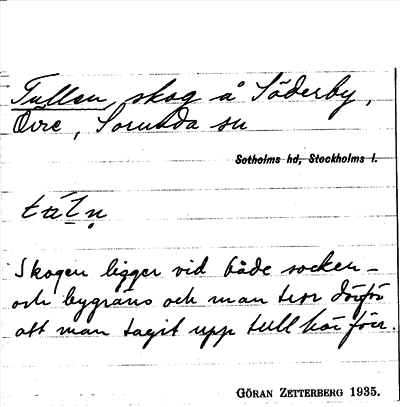 Tullen, skog å Söderby,
Övre, Sorunda sn
Sotholms hd, Stockholms l.
Skogen ligger vid både socken-
och bygräns och man tror därför
att man tagit upp tull här förr.
GÖRAN ZETTERBERG 1935.